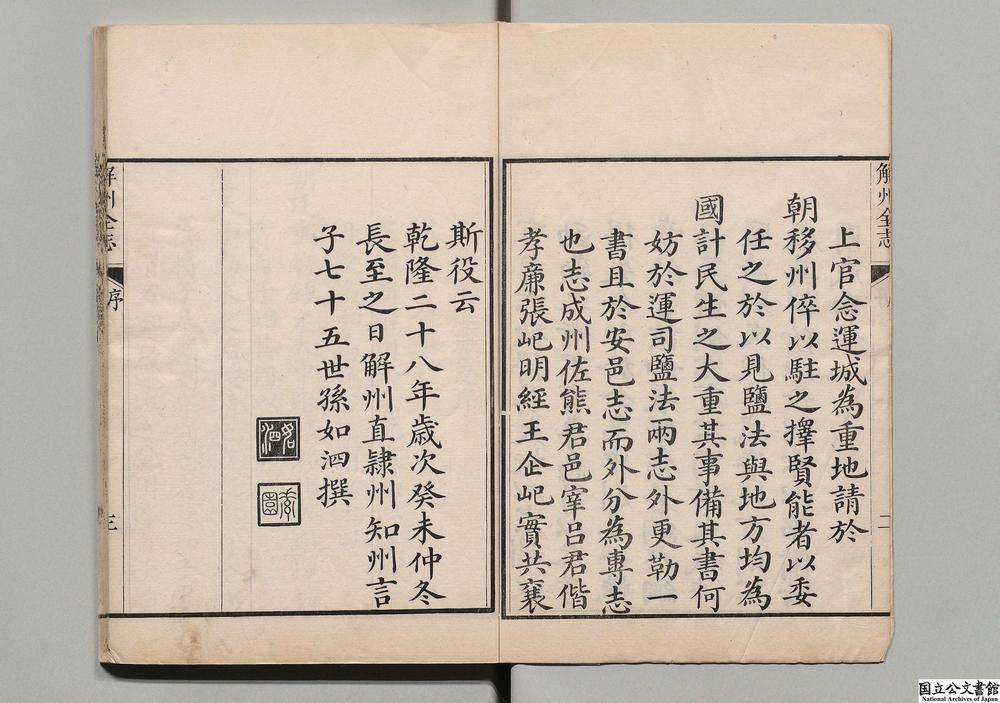 解州全志
序
二
上官念運城為重地請於
朝移州倅以駐之擇賢能者以委
任之於以見鹽法與地方均為
國計民生之大重其事備其書何
妨於運司鹽法兩志外更勒一
書且於安邑志而外分為專志
也志成州佐熊君邑宰呂君偕
孝廉張屺明經王企屺實共襄
斯役云
乾隆二十八年歲次癸未仲冬
長至之日解州直隸州知州言
子七十五世孫如泗撰
如泗
素園
解州全志
序
三
国立公文書館
National Archives of Japan